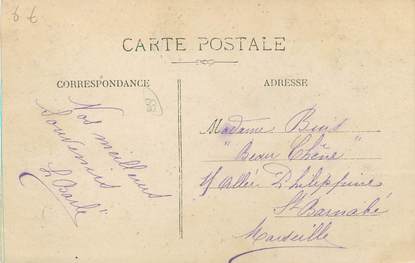 6 €
CARTE POSTALE
CORRESPONDANCE
ADRESSE
Nos meilleurs
Souvenirs
Madame
"Beau Chêne"
Allée Philippine
St Barnabé
Marseille